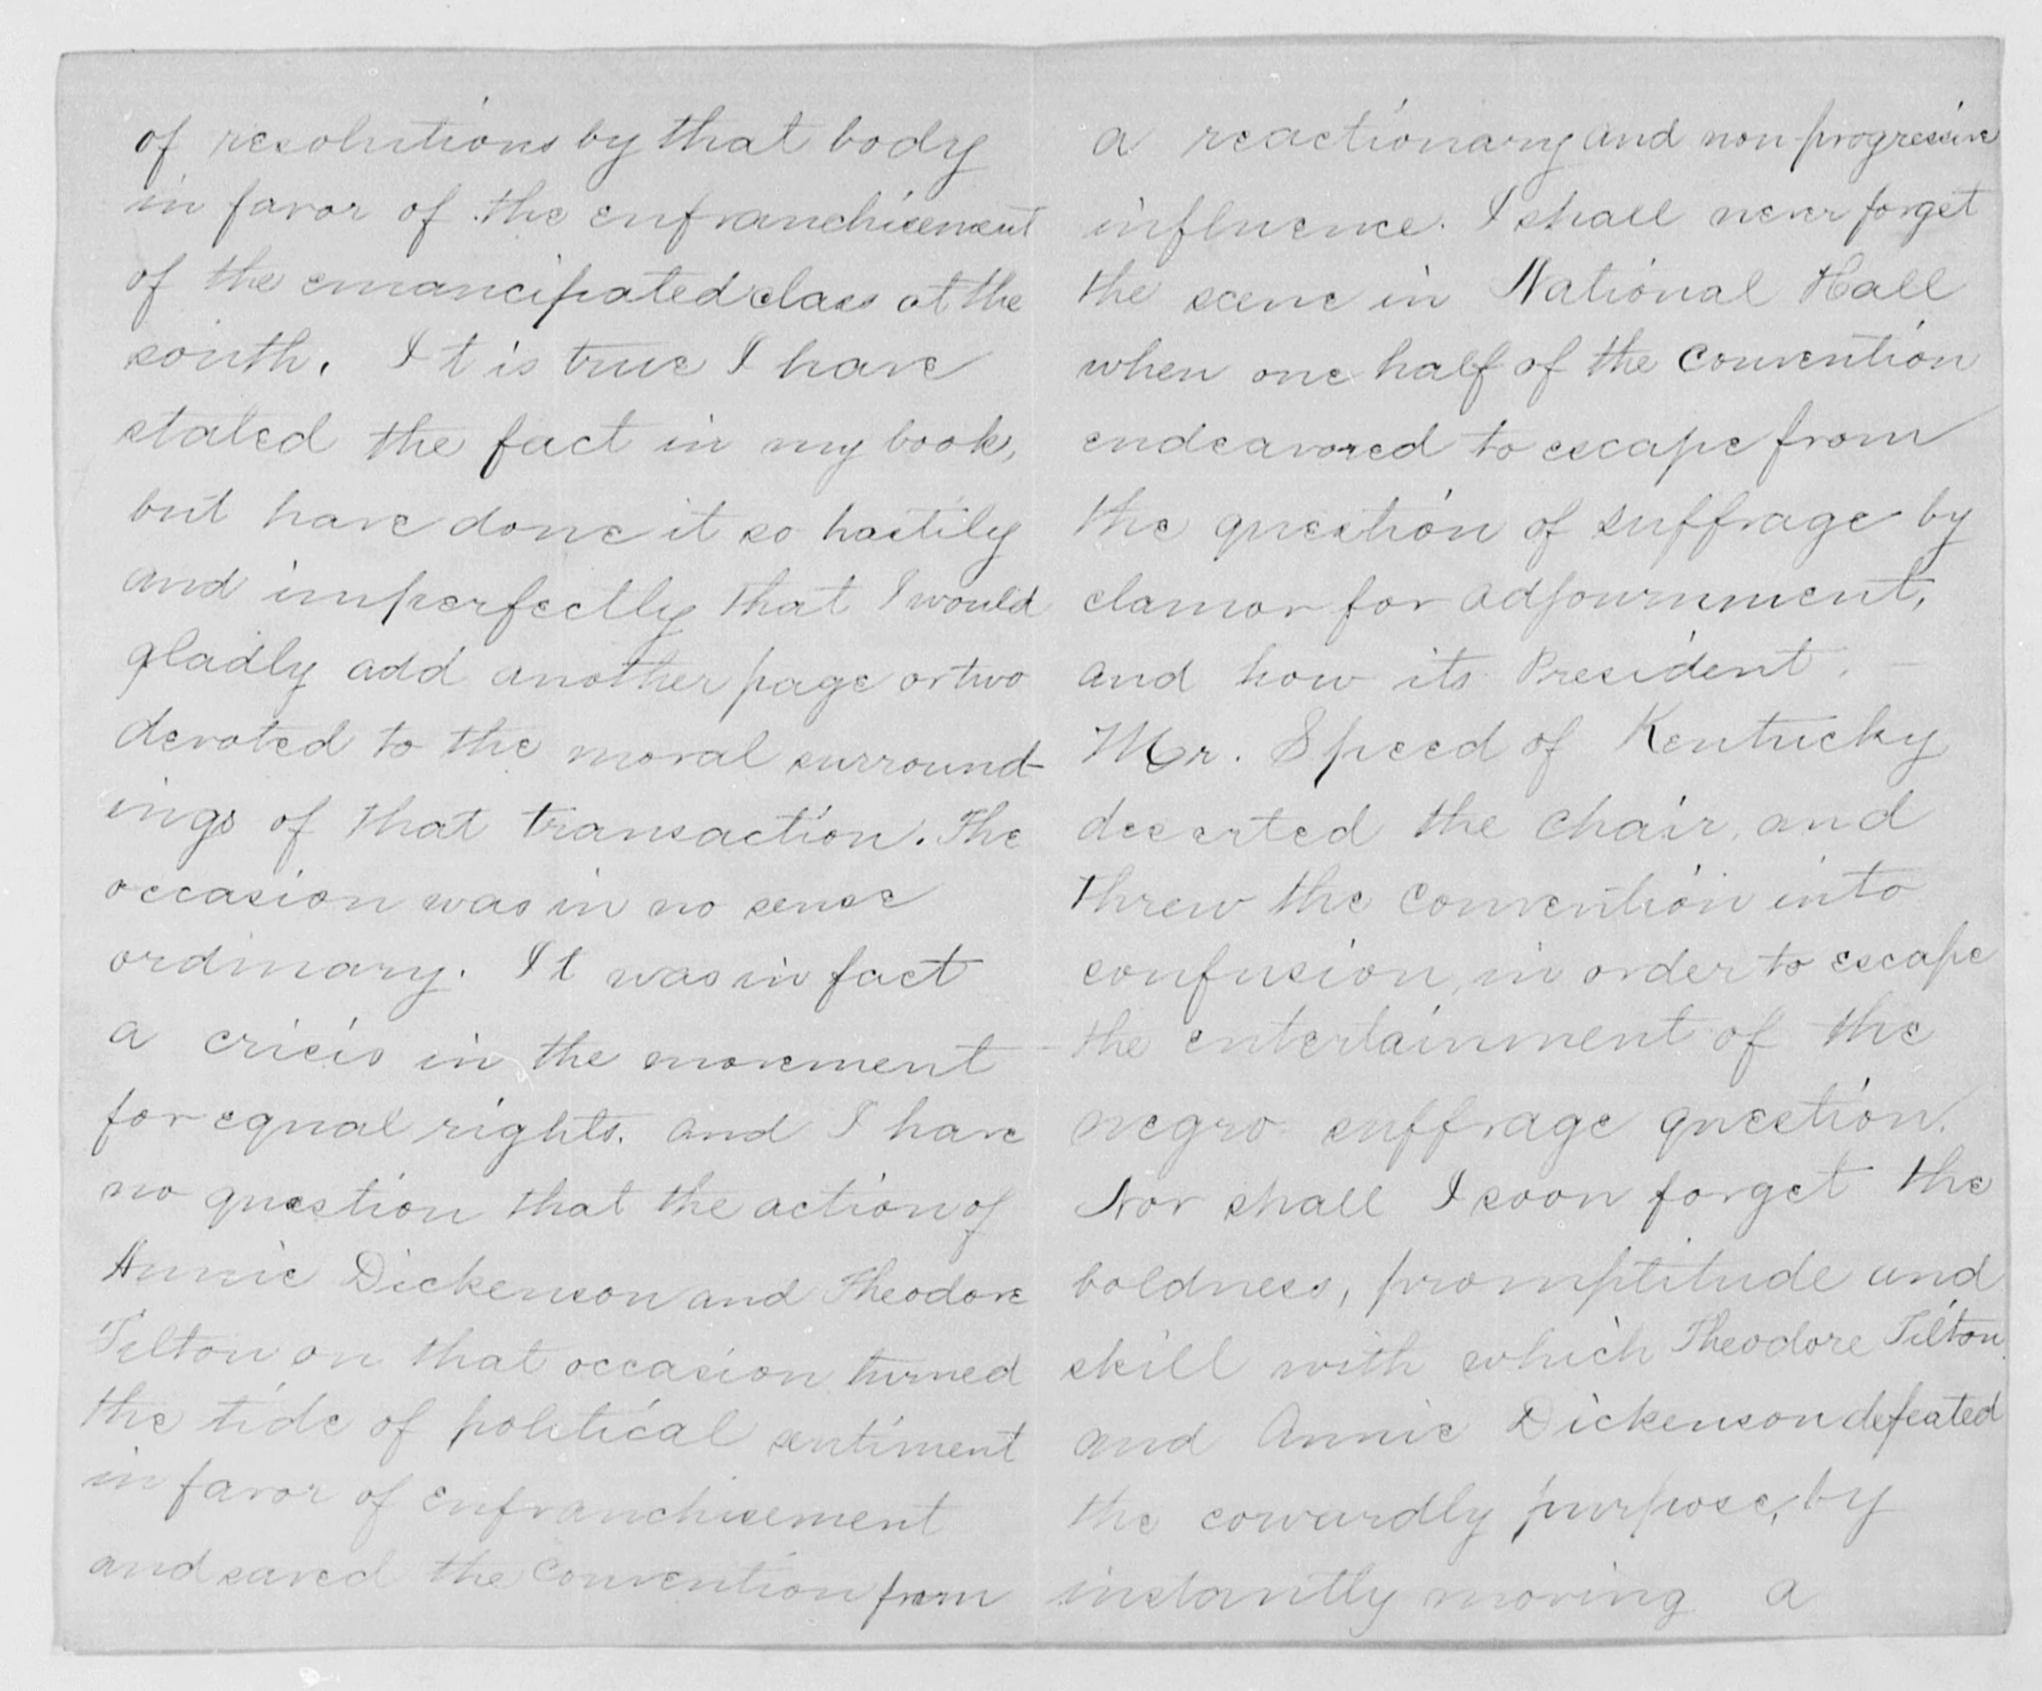 of resolutions by that body
in favor of the enfranchisement
of the emancipated class at the
south. It is true I have
stated the fact in my book,
but have done it so hastily
and imperfectly that I would
gladly add another page or two
devoted to the moral surround-
ings of that transaction. The
occasion was in no sense
ordinary. It was in fact
a crisis in the movement
for equal rights. and I have
no question that the action of
Annie Dickenson and Theodore
Tilton on that occasion turned
the tide of political sentiment
in favor of enfranchisement
and saved the Convention from
a reactionary and non-progressive
influence. I shall never forget
the scene in National Hall
when one half of the Convention
endeavored to escape from
the question of suffrage by
clamor for adjournment,
and how its President.
Mr. Speed of Kentucky
deserted the chair, and
threw the Convention into
confusion, in order to escape
the entertainment of the
negro suffrage question.
Nor shall I soon forget the
boldness, promptitude and
skill with which Theodore Tilton
and Annie Dickenson defeated
the cowardly purpose, by
instantly moving a